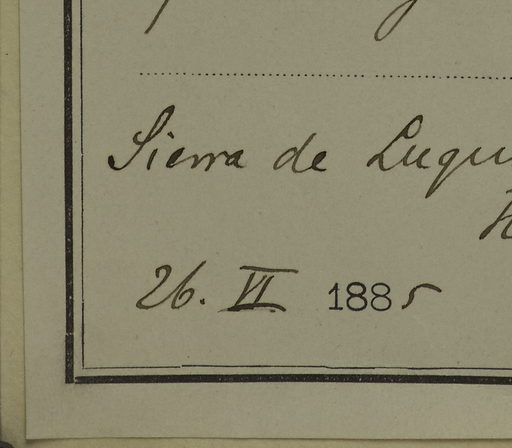 Sierra de Luqu
26. VI 1885